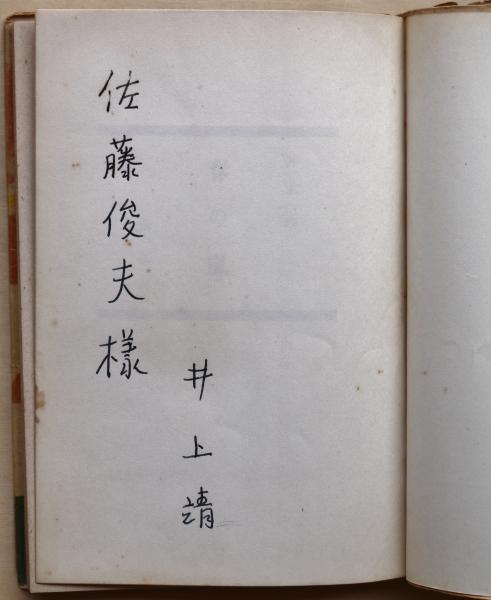 佐藤俊夫様
井上靖